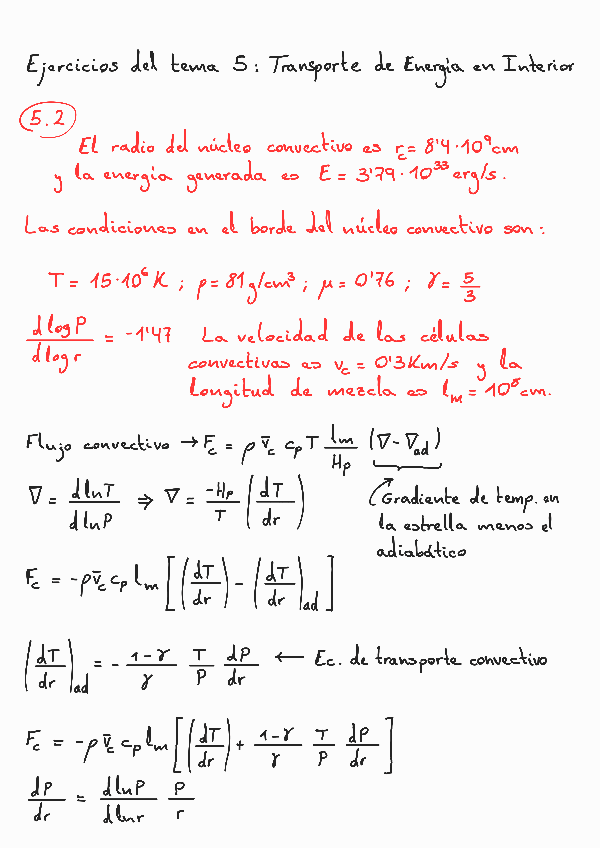 Ejercicios del tema 5: Transporte de Energía en Interior
5.2
El radio del núcleo convectivo es r_c = 8'4·10⁹cm
y la energía generada es E = 3'79·10³³ erg/s.
Las condiciones en el borde del núcleo convectivo son:
T = 15·10⁶ K ; ρ = 81 g/cm³ ; μ = 0'76 ; γ = 5/3
dlogP/dlogr = -1'47 La velocidad de las células
convectivas es v_c = 0'3Km/s y la
Longitud de mezcla es l_m = 10⁸cm.
Flujo convectivo → F_c = ρ v̄_c c_p T l_m/H_p (∇-∇_ad)
∇ = dlnT/dlnP ⇒ ∇ = -H_p/T (dT/dr)
Gradiente de temp. en
la estrella menos el
adiabático
F_c = -ρ v̄_c c_p l_m [(dT/dr) - (dT/dr)_ad]
(dT/dr)_ad = - 1-γ/γ T/P dP/dr ← Ec. de transporte convectivo
F_c = -ρ v̄_c c_p l_m [(dT/dr) + 1-γ/γ T/P dP/dr]
dP/dr = dlnP/dlnr P/r